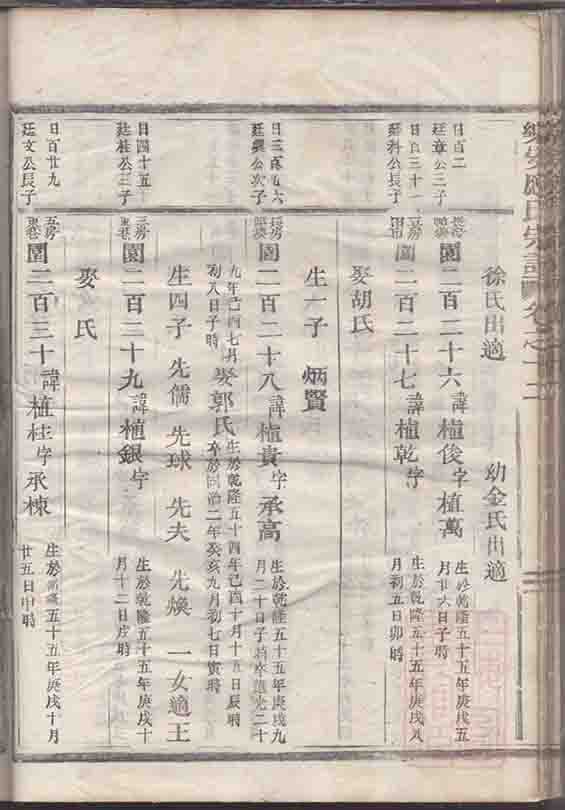 氏宗譜 卷之十三
徐氏出適 幼金氏出適
日百二
廷章公三子
園二百二十六諱植俊字植萬
生於乾隆五十五年庚戌五
月廿六日子時
廷科公長子
二百二十七諱植乾字
生於乾隆五十五年庚戌八
月初五日卯時
娶胡氏
生一子 炳賢
廷興公次子
長房
園二百二十八諱植貴字承高
生於乾隆五十五年庚戌九
月二十日子時卒道光二十
九年己酉七月
初八日子時
娶郭氏
生於乾隆五十四年己酉十月十五日辰時
卒於同治二年癸亥九月初七日寅時
生四子 先儒 先球 先夫 先煥 一女適王
日四十五
廷桂公三子
三房
園二百二十九諱植銀字
生於乾隆五十五年庚戌十
月十二日戌時
娶 氏
日百廿九
廷文公長子
五房
園二百三十諱植桂字承棟
生於乾隆五十五年庚戌十月
廿五日申時